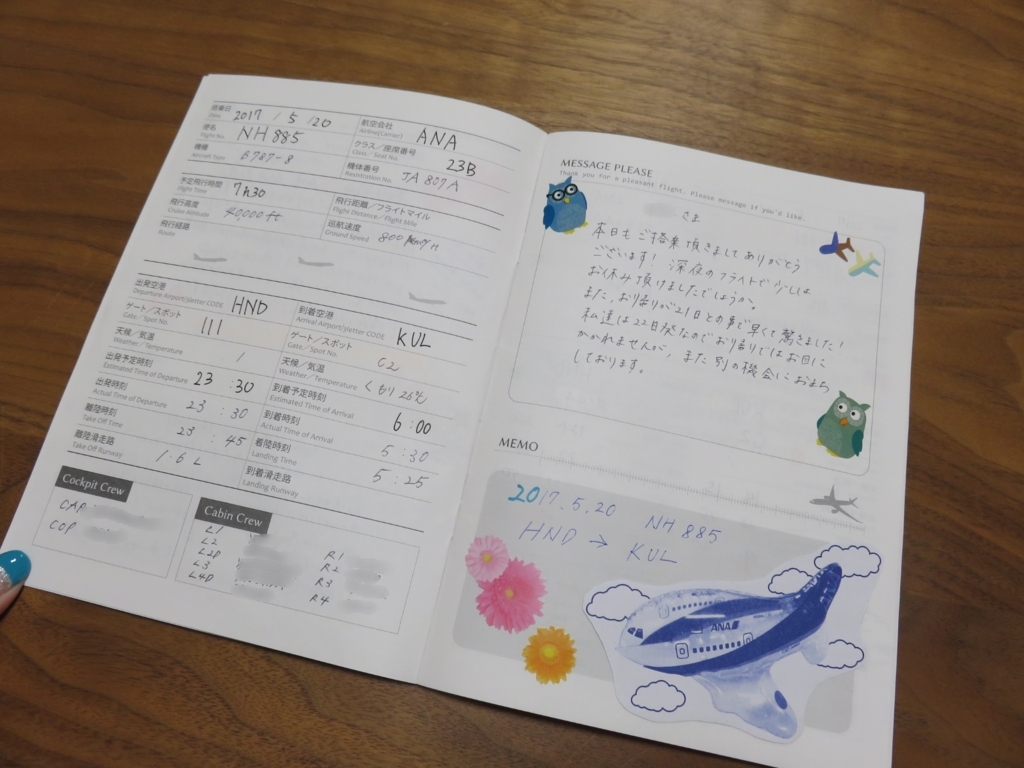 搭乗日 Date 2017 / 5 / 20
航空会社 Airline(Carrier) ANA
便名 Flight No. NH 885
クラス／座席番号 Class / Seat No. 23B
機種 Aircraft Type B787-8
機体番号 Registration No. JA 807A
予定飛行時間 Flight Time 7h30
飛行距離／フライトマイル Flight Distance / Flight Mile
飛行高度 Cruise Altitude 40000 ft
巡航速度 Ground Speed 800 km/H
飛行経路 Route
出発空港 Departure Airport/3letter CODE HND
到着空港 Arrival Airport/3letter CODE KUL
ゲート／スポット Gate / Spot No. 111
ゲート／スポット Gate / Spot No. C2
天候／気温 Weather / Temperature /
天候／気温 Weather / Temperature くもり 26℃
出発予定時刻 Estimated Time of Departure 23 : 30
到着予定時刻 Estimated Time of Arrival 6 : 00
出発時刻 Actual Time of Departure 23 : 30
到着時刻 Actual Time of Arrival 5 : 30
離陸時刻 Take Off Time 23 : 45
着陸時刻 Landing Time 5 : 25
離陸滑走路 Take Off Runway 16L
到着滑走路 Landing Runway
Cockpit Crew
CAP
COP
Cabin Crew
L1
L2
L2P
L3
L4D
R1
R2
R3
R4
MESSAGE PLEASE
Thank you for a pleasant flight. Please message if you'd like.
さま
本日もご搭乗頂きましてありがとう
ございます！ 深夜のフライトで少しは
お休み頂けましたでしょうか。
また、お帰りが21日との事で早くて驚きました！
私達は22日発なのでお帰りではお目に
かかれませんが、また別の機会におまち
しております。
MEMO
2017.5.20 NH 885
HND → KUL
ANA